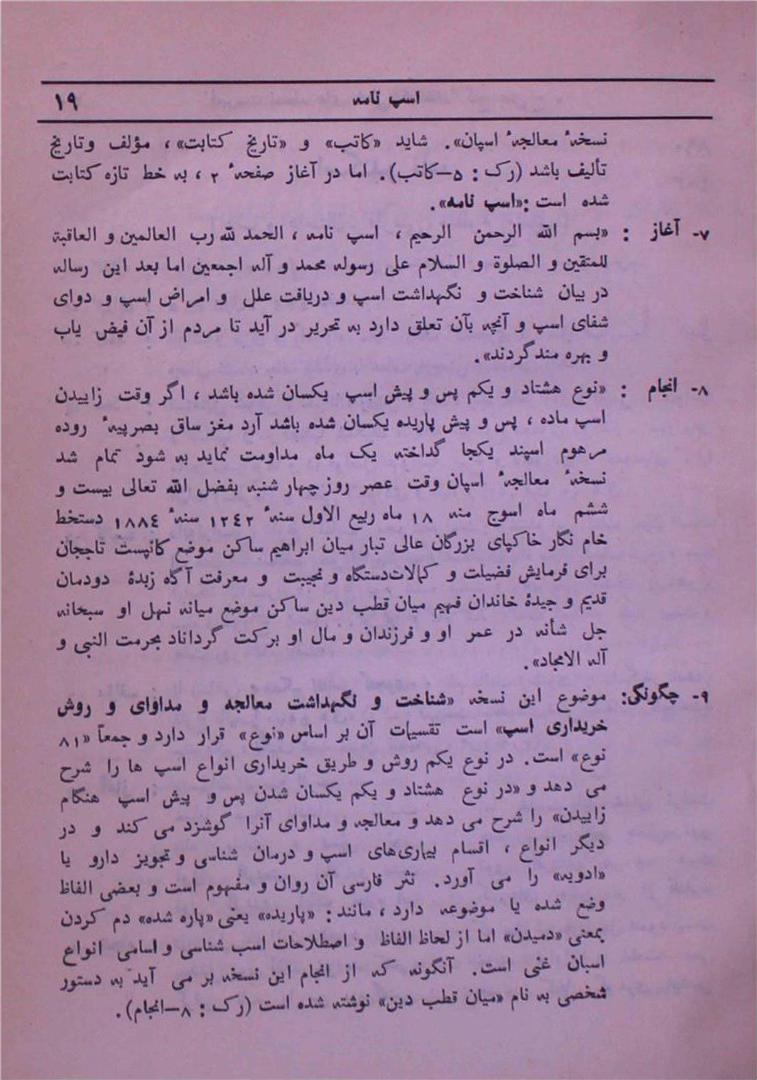 اسپ نامه ۱۹
نسخهٔ معالجهٔ اسپان». شاید «کاتب» و «تاریخ کتابت»، مؤلف وتاریخ
تألیف باشد (رک : ۵–کاتب). اما در آغاز صفحهٔ ۲ ، به خط تازه کتابت
شده است :«اسپ نامه».
۷- آغاز : «بسم الله الرحمن الرحیم ، اسپ نامه ، الحمد لله رب العالمین و العاقبة
للمتقین و الصلوة و السلام علی رسوله محمد و آله اجمعین اما بعد این رساله
در بیان شناخت و نگهداشت اسپ و دریافت علل و امراض اسپ و دوای
شفای اسپ و آنچه بآن تعلق دارد به تحریر در آید تا مردم از آن فیض یاب
و بهره مند گردند».
۸- انجام : «نوع هشتاد و یکم پس و پیش اسپ یکسان شده باشد ، اگر وقت زاییدن
اسپ ماده ، پس و پیش پاریده یکسان شده باشد آرد مغز ساق بصرپیهٔ روده
مرهوم اسپند یکجا گداخته یک ماه مداومت نماید به شود تمام شد
نسخهٔ معالجهٔ اسپان وقت عصر روز چهار شنبه بفضل الله تعالی بیست و
ششم ماه اسوج منه ۱۸ ماه ربیع الاول سنهٔ ۱۲۴۲ سنهٔ ۱۸۸٤ دستخط
خام نگار خاکپای بزرگان عالی تبار میان ابراهیم ساکن موضع کانپست تاجچان
برای فرمایش فضیلت و کمالات‌دستگاه و نجیبت و معرفت آگاه زبدۀ دودمان
قدیم و جیدۀ خاندان فهیم میان قطب دین ساکن موضع میانه نهل او سبحانه
جل شأنه در عمر او و فرزندان و مال او برکت گرداناد بحرمت النبی و
آله الامجاد».
۹- چگونگی: موضوع این نسخه «شناخت و نگهداشت معالجه و مداوای و روش
خریداری اسپ» است تقسیمات آن بر اساس «نوع» قرار دارد و جمعاً «۸۱
نوع» است. در نوع یکم روش و طریق خریداری انواع اسپ ها را شرح
می دهد و «در نوع هشتاد و یکم یکسان شدن پس و پیش اسپ هنگام
زاییدن» را شرح می دهد و معالجه و مداوای آنرا گوشزد می کند و در
دیگر انواع ، اقسام بیماری‌های اسپ و درمان شناسی و تجویز دارو یا
«ادویه» را می آورد. نثر فارسی آن روان و مفهوم است و بعضی الفاظ
وضع شده یا موضوعه دارد ، مانند: «پاریده» یعنی «پاره شده» دم کردن
بمعنی «دمیدن» اما از لحاظ الفاظ و اصطلاحات اسب شناسی و اسامی انواع
اسبان غنی است. آنگونه که از انجام این نسخه بر می آید به دستور
شخصی به نام «میان قطب دین» نوشته شده است (رک : ۸–انجام).